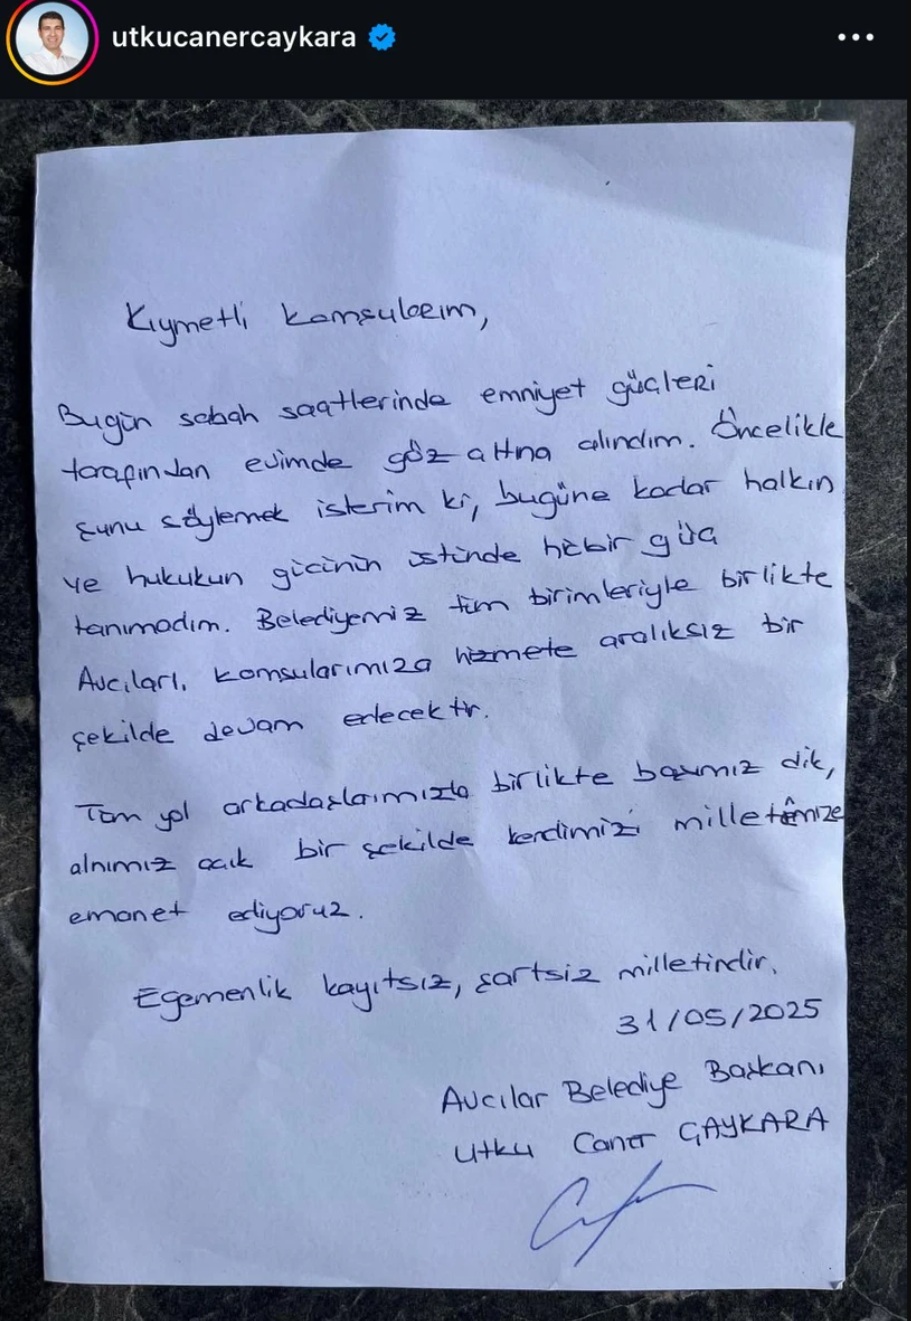 utkucanercaykara
Kıymetli komşularım,
Bugün sabah saatlerinde emniyet güçleri
tarafından evimde göz altına alındım. Öncelikle
şunu söylemek isterim ki, bugüne kadar halkın
ve hukukun gücünün üstünde hiçbir güç
tanımadım. Belediyemiz tüm birimleriyle birlikte
Avcıları, komşularımıza hizmete aralıksız bir
şekilde devam edecektir.
Tüm yol arkadaşlarımızla birlikte başımız dik,
alnımız açık bir şekilde kendimizi milletimize
emanet ediyoruz.
Egemenlik kayıtsız, şartsız milletindir.
31/05/2025
Avcılar Belediye Başkanı
Utku Caner ÇAYKARA